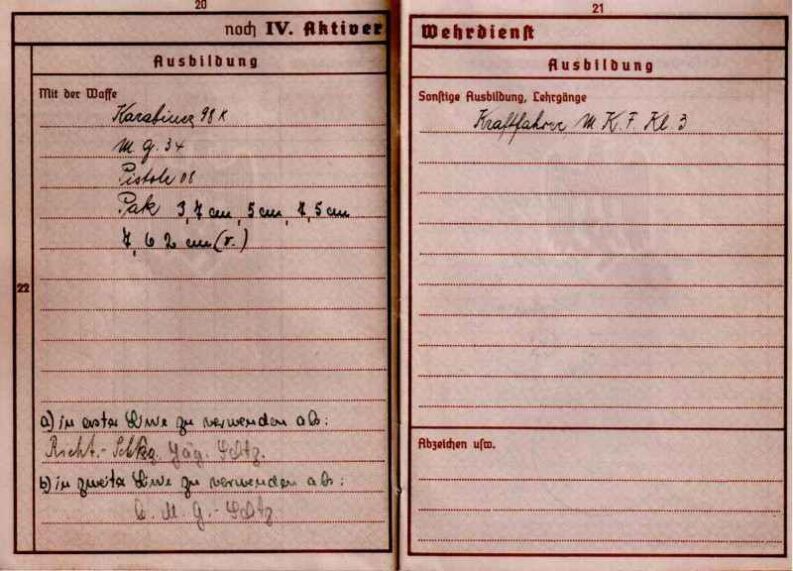 20
noch IV. Aktiver
Ausbildung
22
Mit der Waffe
Karabiner 98 K
M. G. 34
Pistole 08
Pak 3,7 cm, 5 cm, 7,5 cm
7,62 cm (r.)
a) in erster Linie zu verwenden als:
Richt.- Schtz.
b) in zweiter Linie zu verwenden als:
M. G.- Schtz
21
Wehrdienst
Ausbildung
Sonstige Ausbildung, Lehrgänge
Kraftfahrer M. K. F. Kl. 3
Abzeichen usw.